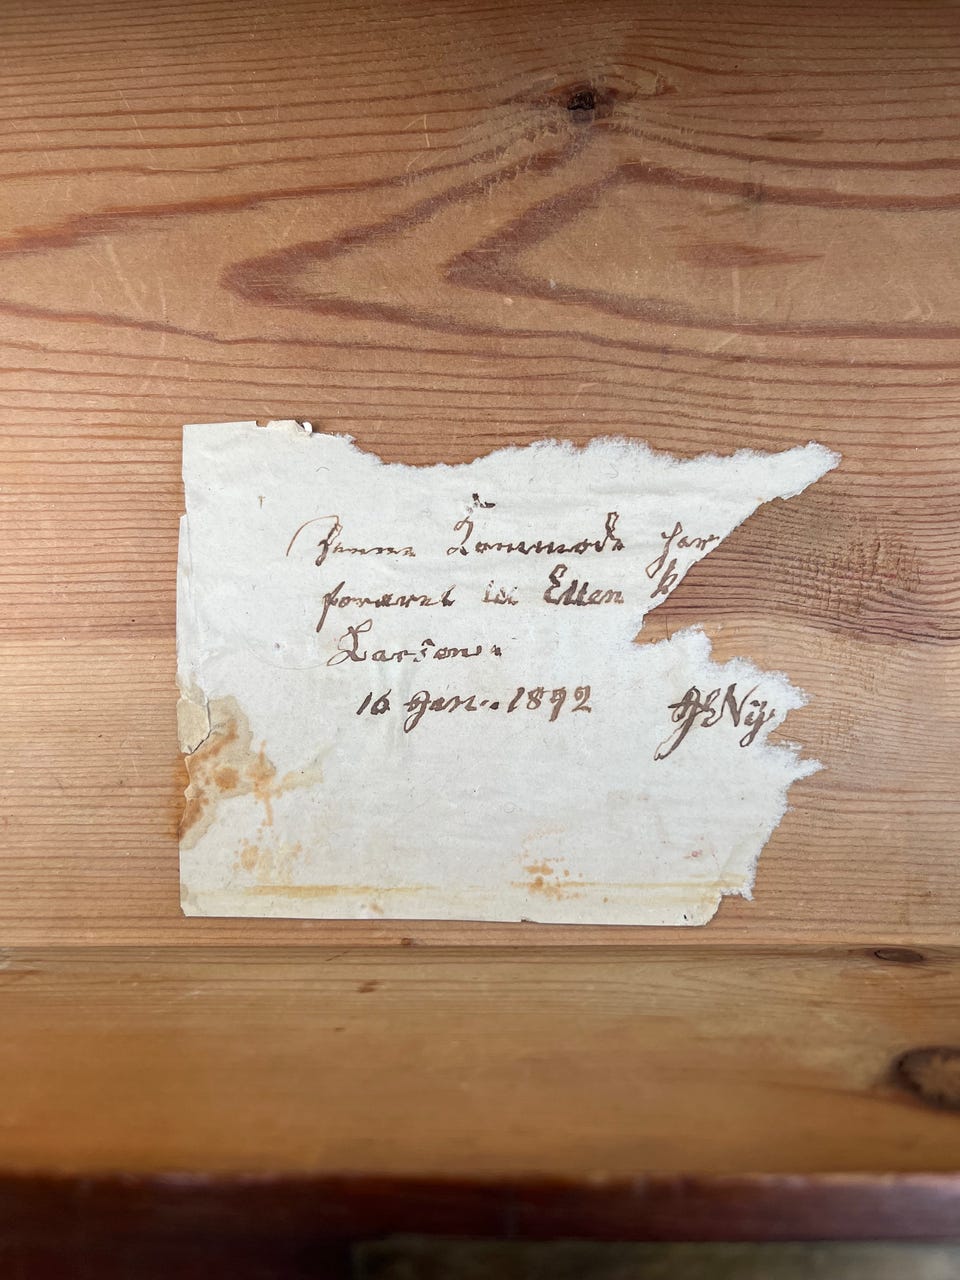 Denne Kommode har
foraret til Ellen K
Larson.
16 Jan.. 1892